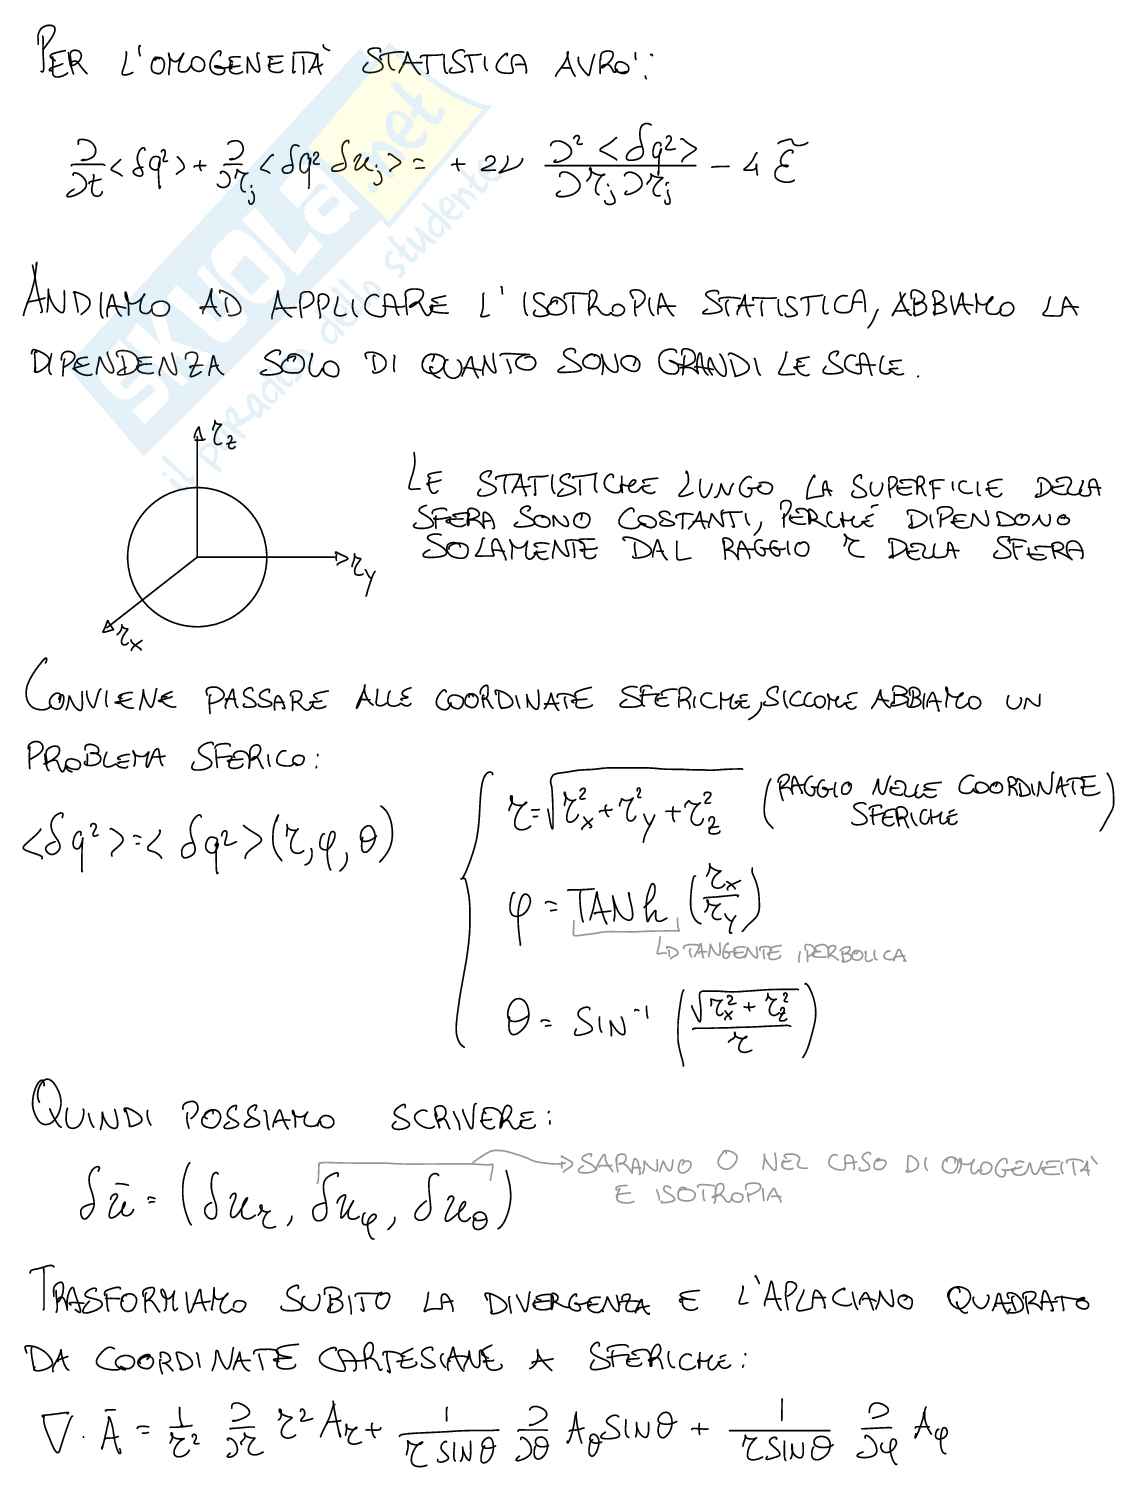 PER L'OMOGENEITÀ STATISTICA AVRO':
∂/∂t <δq²> + ∂/∂r_j <δq² δu_j> = + 2ν ∂² <δq²> / ∂r_j ∂r_j − 4 ε̃
ANDIAMO AD APPLICARE L'ISOTROPIA STATISTICA, ABBIAMO LA
DIPENDENZA SOLO DI QUANTO SONO GRANDI LE SCALE.
r_z
r_y
r_x
LE STATISTICHE LUNGO LA SUPERFICIE DELLA
SFERA SONO COSTANTI, PERCHÉ DIPENDONO
SOLAMENTE DAL RAGGIO r DELLA SFERA
CONVIENE PASSARE ALLE COORDINATE SFERICHE, SICCOME ABBIAMO UN
PROBLEMA SFERICO:
<δq²> = <δq²>(r, φ, θ)
r = √(r_x² + r_y² + r_z²) (RAGGIO NELLE COORDINATE
SFERICHE)
φ = TANh (r_x / r_y)
TANGENTE IPERBOLICA
θ = SIN⁻¹ (√(r_x² + r_z²) / r)
QUINDI POSSIAMO SCRIVERE:
δū = (δu_r, δu_φ, δu_θ)
SARANNO 0 NEL CASO DI OMOGENEITÀ
E ISOTROPIA
TRASFORMIAMO SUBITO LA DIVERGENZA E L'APLACIANO QUADRATO
DA COORDINATE CARTESIANE A SFERICHE:
∇ · Ā = 1/r² ∂/∂r r² A_r + 1/(r SINθ) ∂/∂θ A_θ SINθ + 1/(r SINθ) ∂/∂φ A_φ
SKUOLA.net
il paradiso dello studente